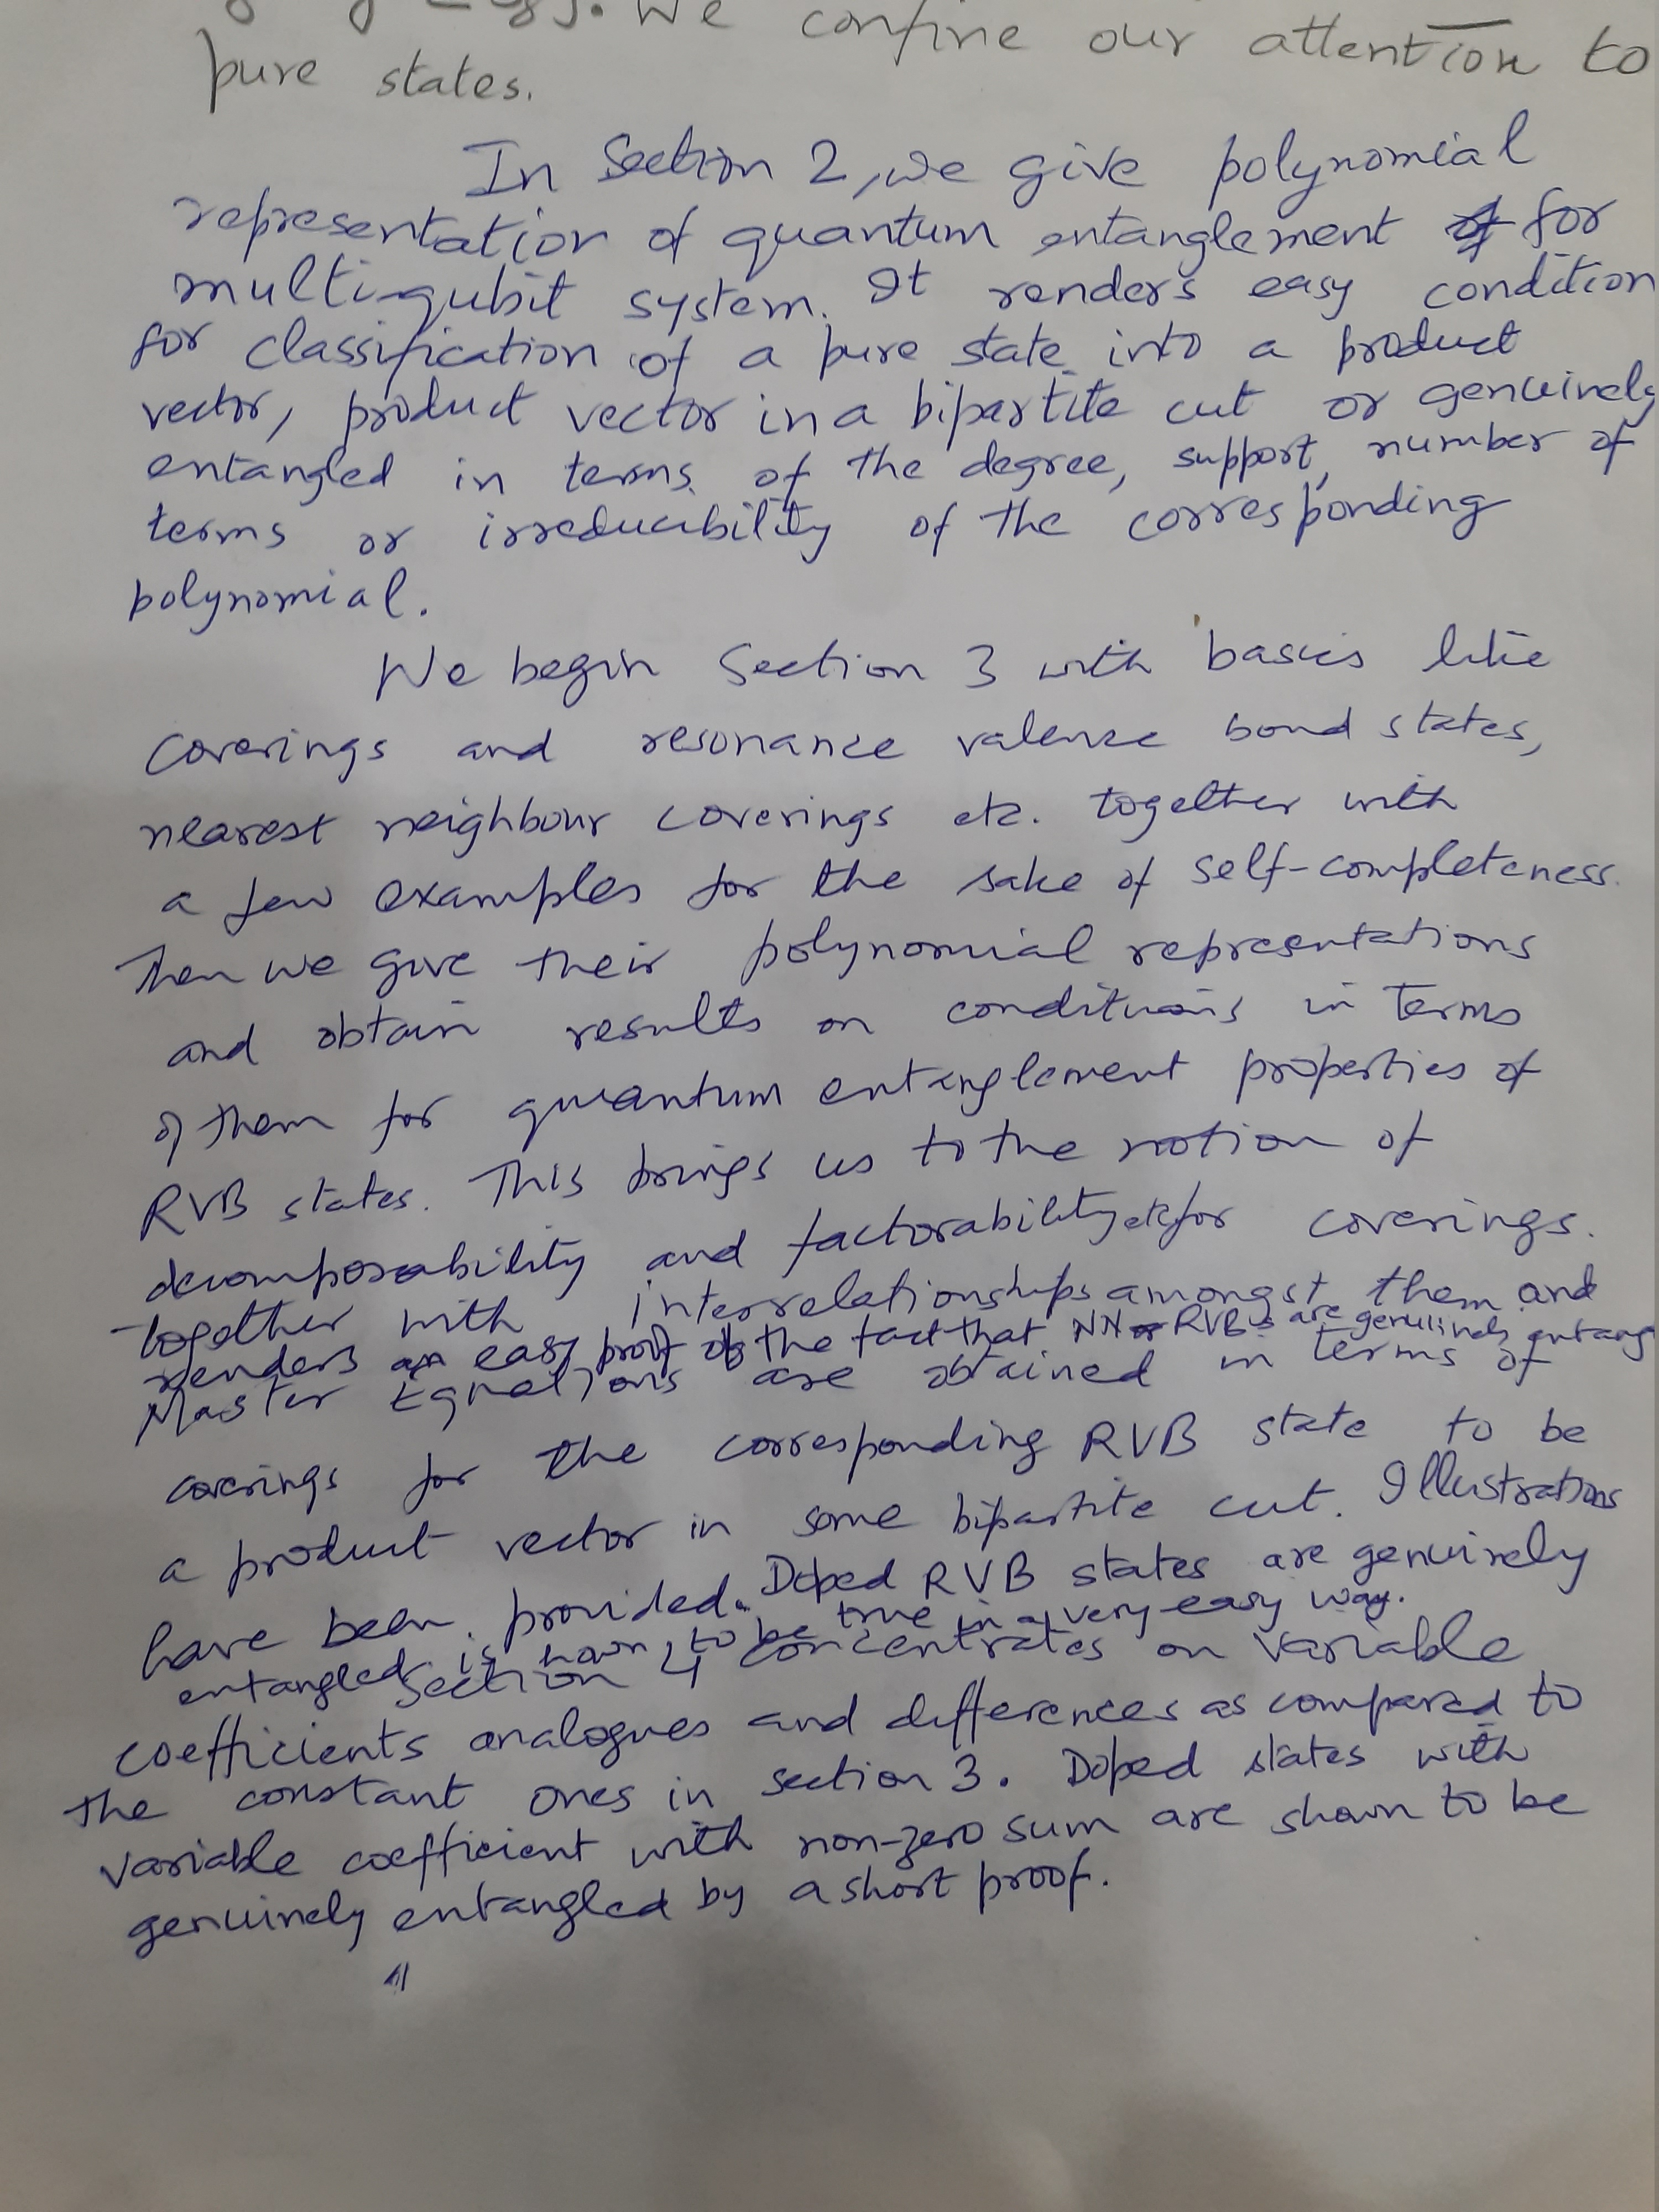 We confine our attention to
pure states.
In Section 2, we give polynomial
representation of quantum entanglement for
multi-qubit system. It renders easy condition
for classification of a pure state into a product
vector, product vector in a bipartite cut or genuinely
entangled in terms of the degree, support, number of
terms or irreducibility of the corresponding
polynomial.
We begin Section 3 with basics like
coverings and resonance valence bond states,
nearest neighbour coverings etc. together with
a few examples for the sake of self-completeness.
Then we give their polynomial representations
and obtain results on conditions in terms
of them for quantum entanglement properties of
RVB states. This brings us to the notion of
decomposability and factorability etc for coverings.
together with interrelationships amongst them and
renders an easy proof of the fact that NN RVB's are genuinely entang
Master Equations are obtained in terms of
coverings for the corresponding RVB state to be
a product vector in some bipartite cut. Illustrations
have been provided. Doped RVB states are genuinely
entangled is hown to be true in a very easy way.
Section 4 concentrates on variable
coefficients analogues and differences as compared to
the constant ones in section 3. Doped states with
variable coefficient with non-zero sum are shown to be
genuinely entangled by a short proof.